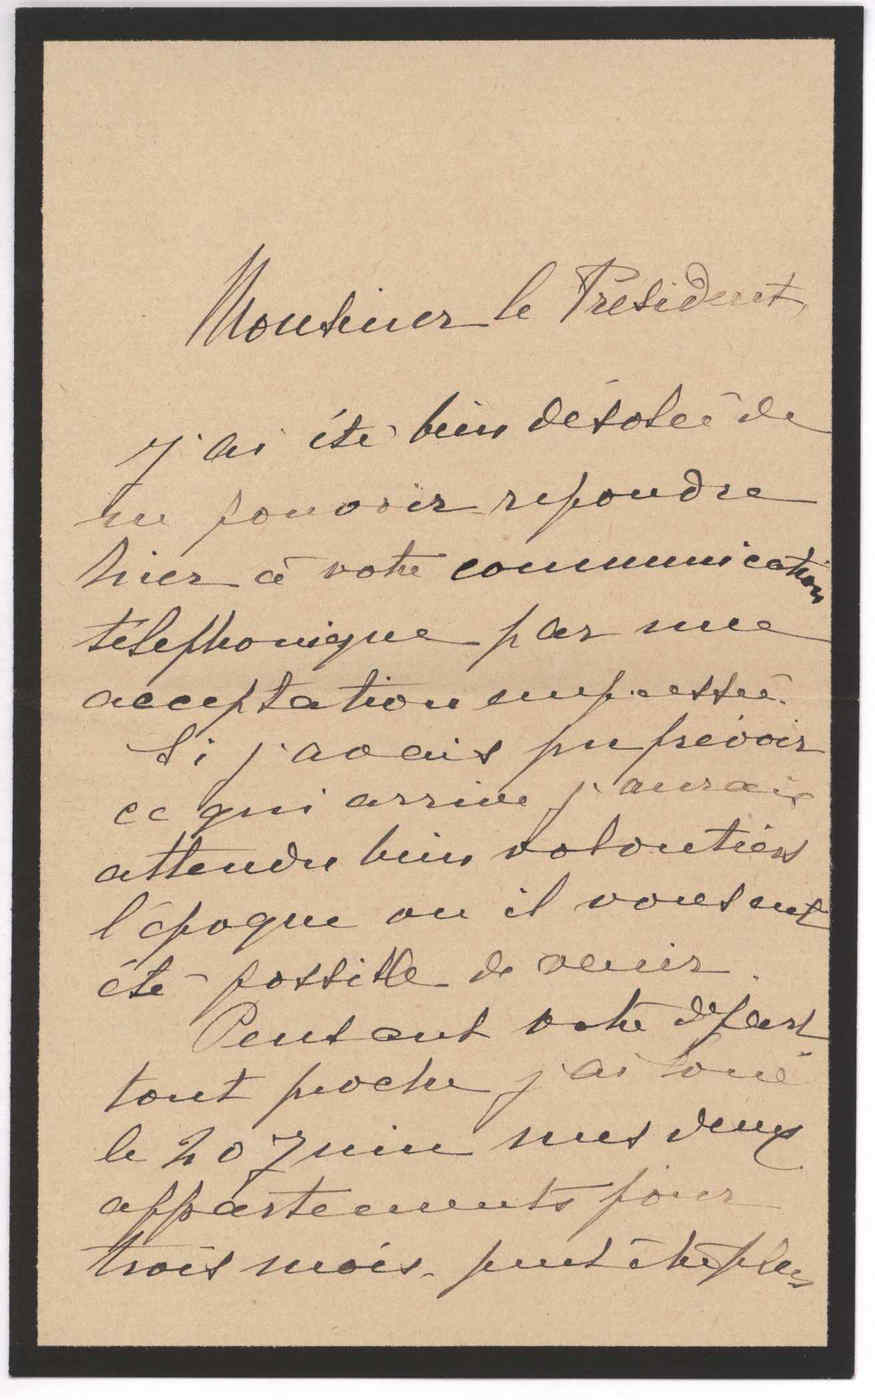 Monsieur le Président,
J'ai été bien désolée de
ne pouvoir repondre
hier à votre communication
téléphonique par une
acceptation empressée.
Si j'avais pu prévoir
ce qui arrive j'aurais
attendu bien volontiers
l'époque ou il vous eut
été possible de venir.
Pensant votre départ
tout proche j'ai loué
le 20 Juin mes deux
appartements pour
trois mois. peut être plus